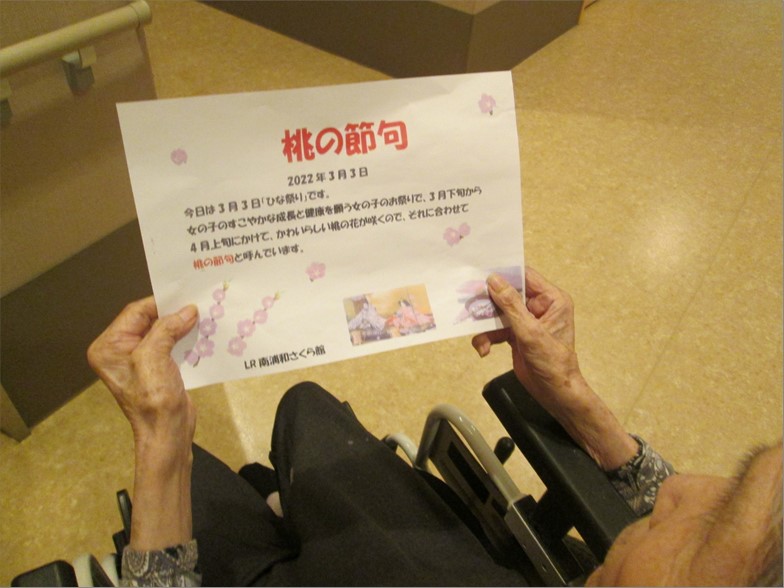 桃の節句
2022年3月3日
今日は3月3日「ひな祭り」です。
女の子のすこやかな成長と健康を願う女の子のお祭りで、3月下旬から
4月上旬にかけて、かわいらしい桃の花が咲くので、それに合わせて
桃の節句と呼んでいます。
LR南浦和さくら館